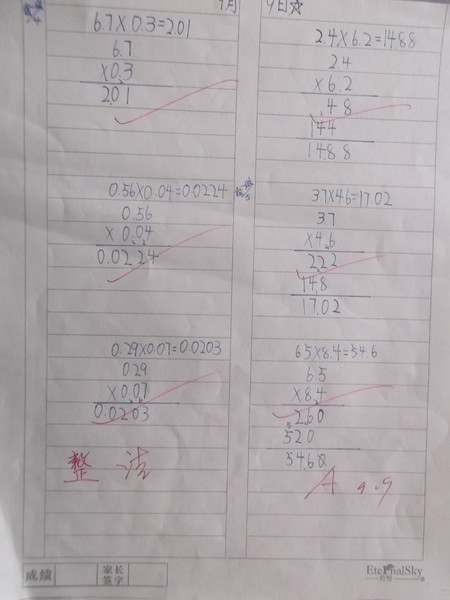 9月 9日
6.7×0.3=2.01
6.7
×0.3
2.01
0.56×0.04=0.0224
0.56
×0.04
0.0224
0.29×0.07=0.0203
0.29
×0.07
0.0203
整洁
2.4×6.2=14.88
2.4
×6.2
48
144
14.88
3.7×4.6=17.02
3.7
×4.6
222
148
17.02
6.5×8.4=54.6
6.5
×8.4
260
520
54.60
A 9.9
成绩 家长签字
EternalSky